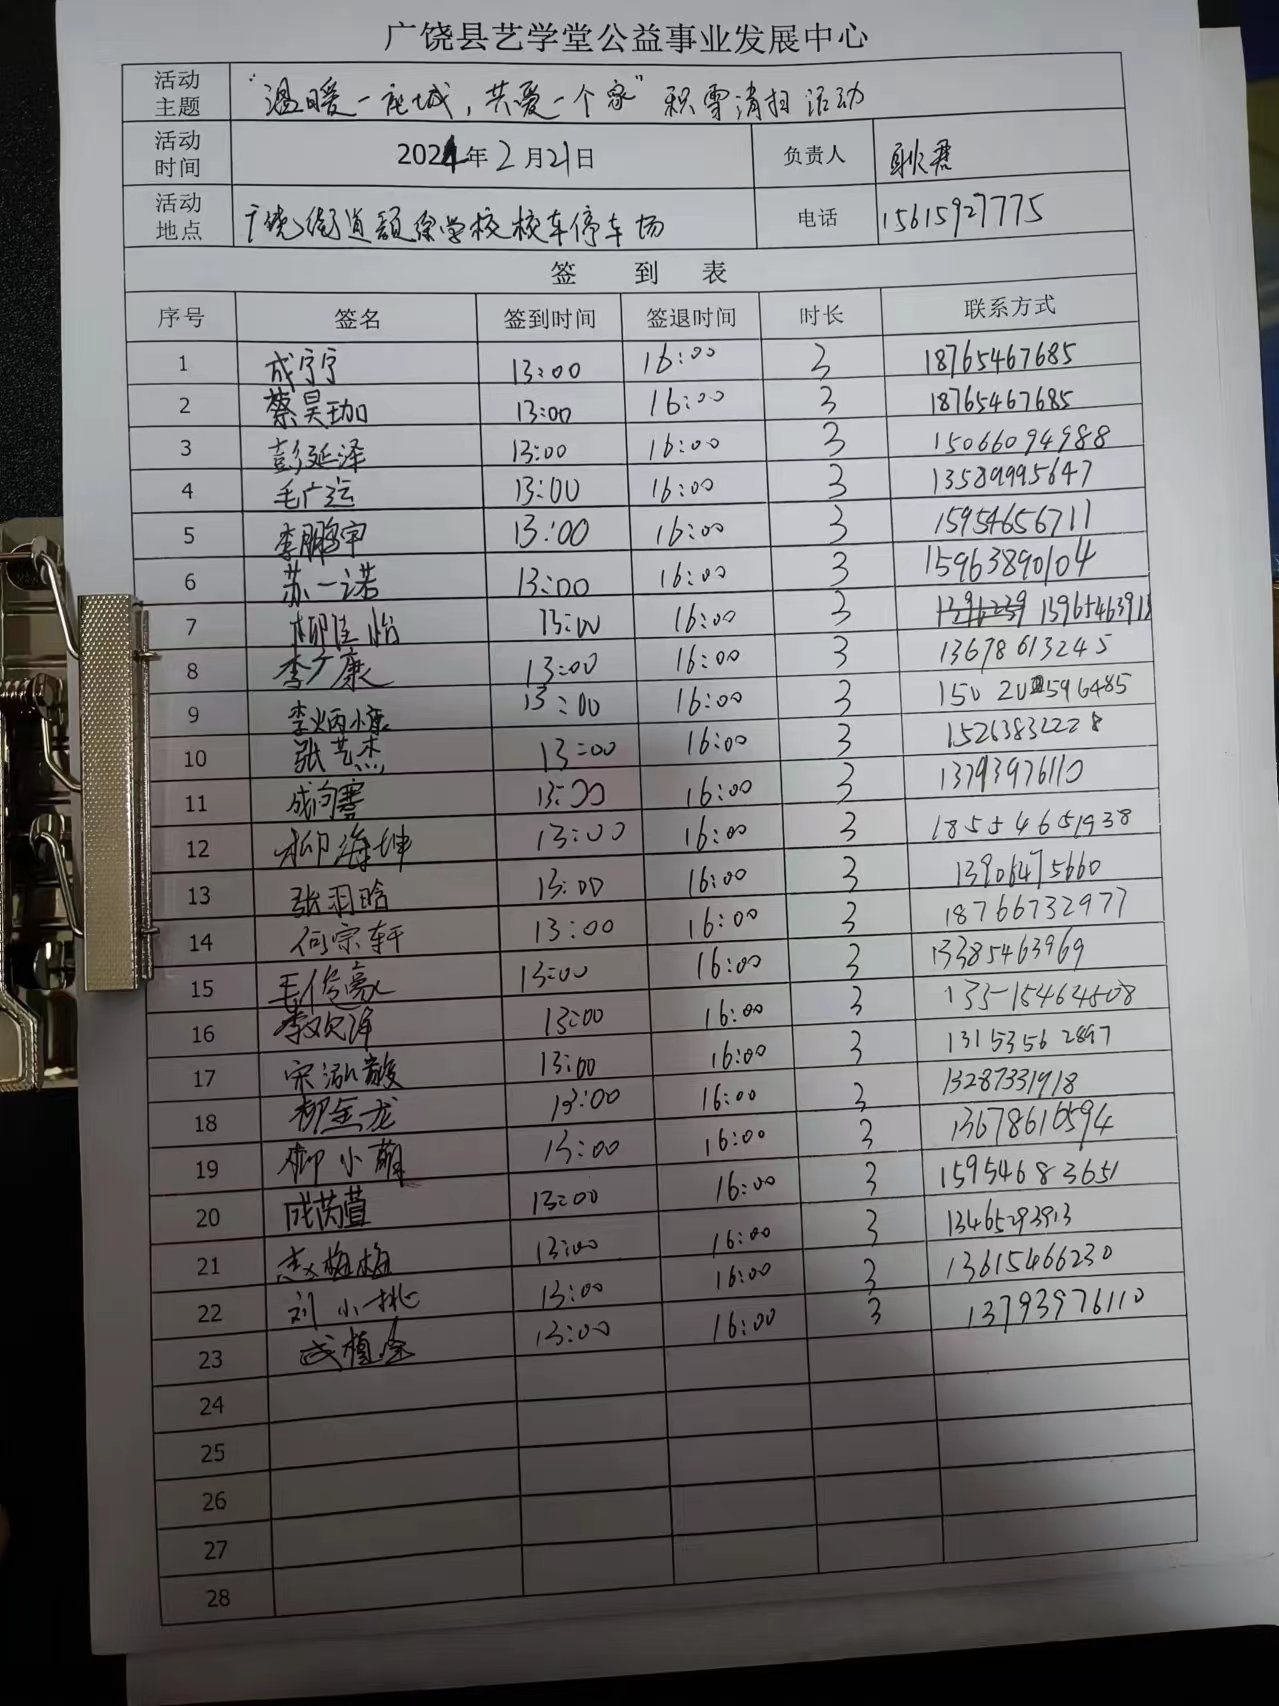 广饶县艺学堂公益事业发展中心
活动主题 “温暖一座城，共爱一个家”积雪清扫活动
活动时间 2024年2月21日 负责人 耿君
活动地点 广饶街道颜徐学校校车停车场 电话 15615927775
签 到 表
序号 签名 签到时间 签退时间 时长 联系方式
1 成宁宁 13:00 16:00 3 18765467685
2 蔡昊珈 13:00 16:00 3 18765467685
3 彭延泽 13:00 16:00 3 15066094988
4 毛广运 13:00 16:00 3 13589995647
5 李鹏宇 13:00 16:00 3 15954656711
6 苏一诺 13:00 16:00 3 15963890104
7 柳佳怡 13:00 16:00 3
8 李广康 13:00 16:00 3 13678613245
9 李炳康 13:00 16:00 3
10 张艺杰 13:00 16:00 3 15263832228
11 13:00 16:00 3 13793976110
12 柳海坤 13:00 16:00 3 18554651938
13 张羽晗 13:00 16:00 3 13906475660
14 何宗轩 13:00 16:00 3 18766732977
15 毛俊豪 13:00 16:00 3 13385463969
16 李欢泽 13:00 16:00 3
17 宋泓毅 13:00 16:00 3 13153562897
18 柳金龙 13:00 16:00 3 13287331918
19 柳小萌 13:00 16:00 3 13678610594
20 成芮萱 13:00 16:00 3 15954683651
21 赵梅梅 13:00 16:00 3 13465293913
22 刘小桃 13:00 16:00 3 13615466230
23 13:00 16:00 3 13793976110
24
25
26
27
28